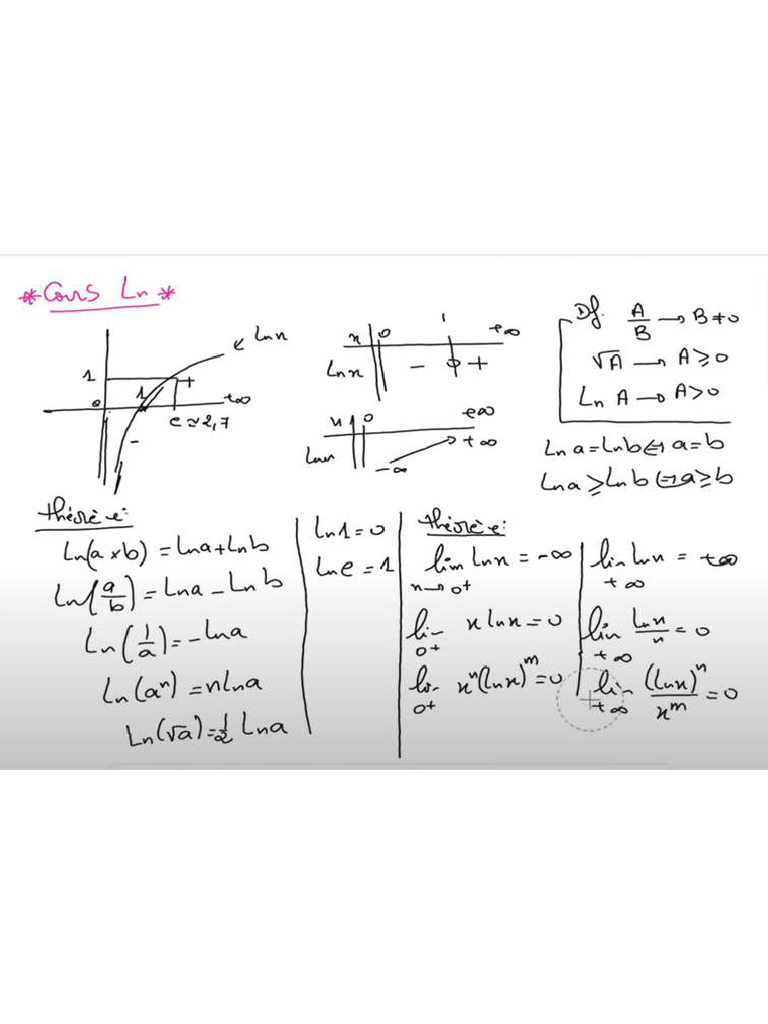 *Cours Ln*
Ln x
1
+
0
1
+∞
e ≃ 2,7
-
x 0 1 +∞
Ln x - 0 +
x 0 +∞
Ln x -∞ +∞
Df. A/B → B ≠ 0
√A → A ≥ 0
Ln A → A > 0
Ln a = Ln b ⇔ a = b
Ln a ≥ Ln b ⇔ a ≥ b
théorè e:
Ln(a × b) = Ln a + Ln b
Ln(a/b) = Ln a - Ln b
Ln(1/a) = - Ln a
Ln(aⁿ) = n Ln a
Ln(√a) = 1/2 Ln a
Ln 1 = 0
Ln e = 1
théorè e:
lim Ln x = -∞
x → 0⁺
li- x Ln x = 0
0⁺
li- xⁿ(Ln x)ᵐ = 0
0⁺
lim Ln x = +∞
+∞
lim Ln x / x = 0
+∞
lim (Ln x)ⁿ / xᵐ = 0
+∞